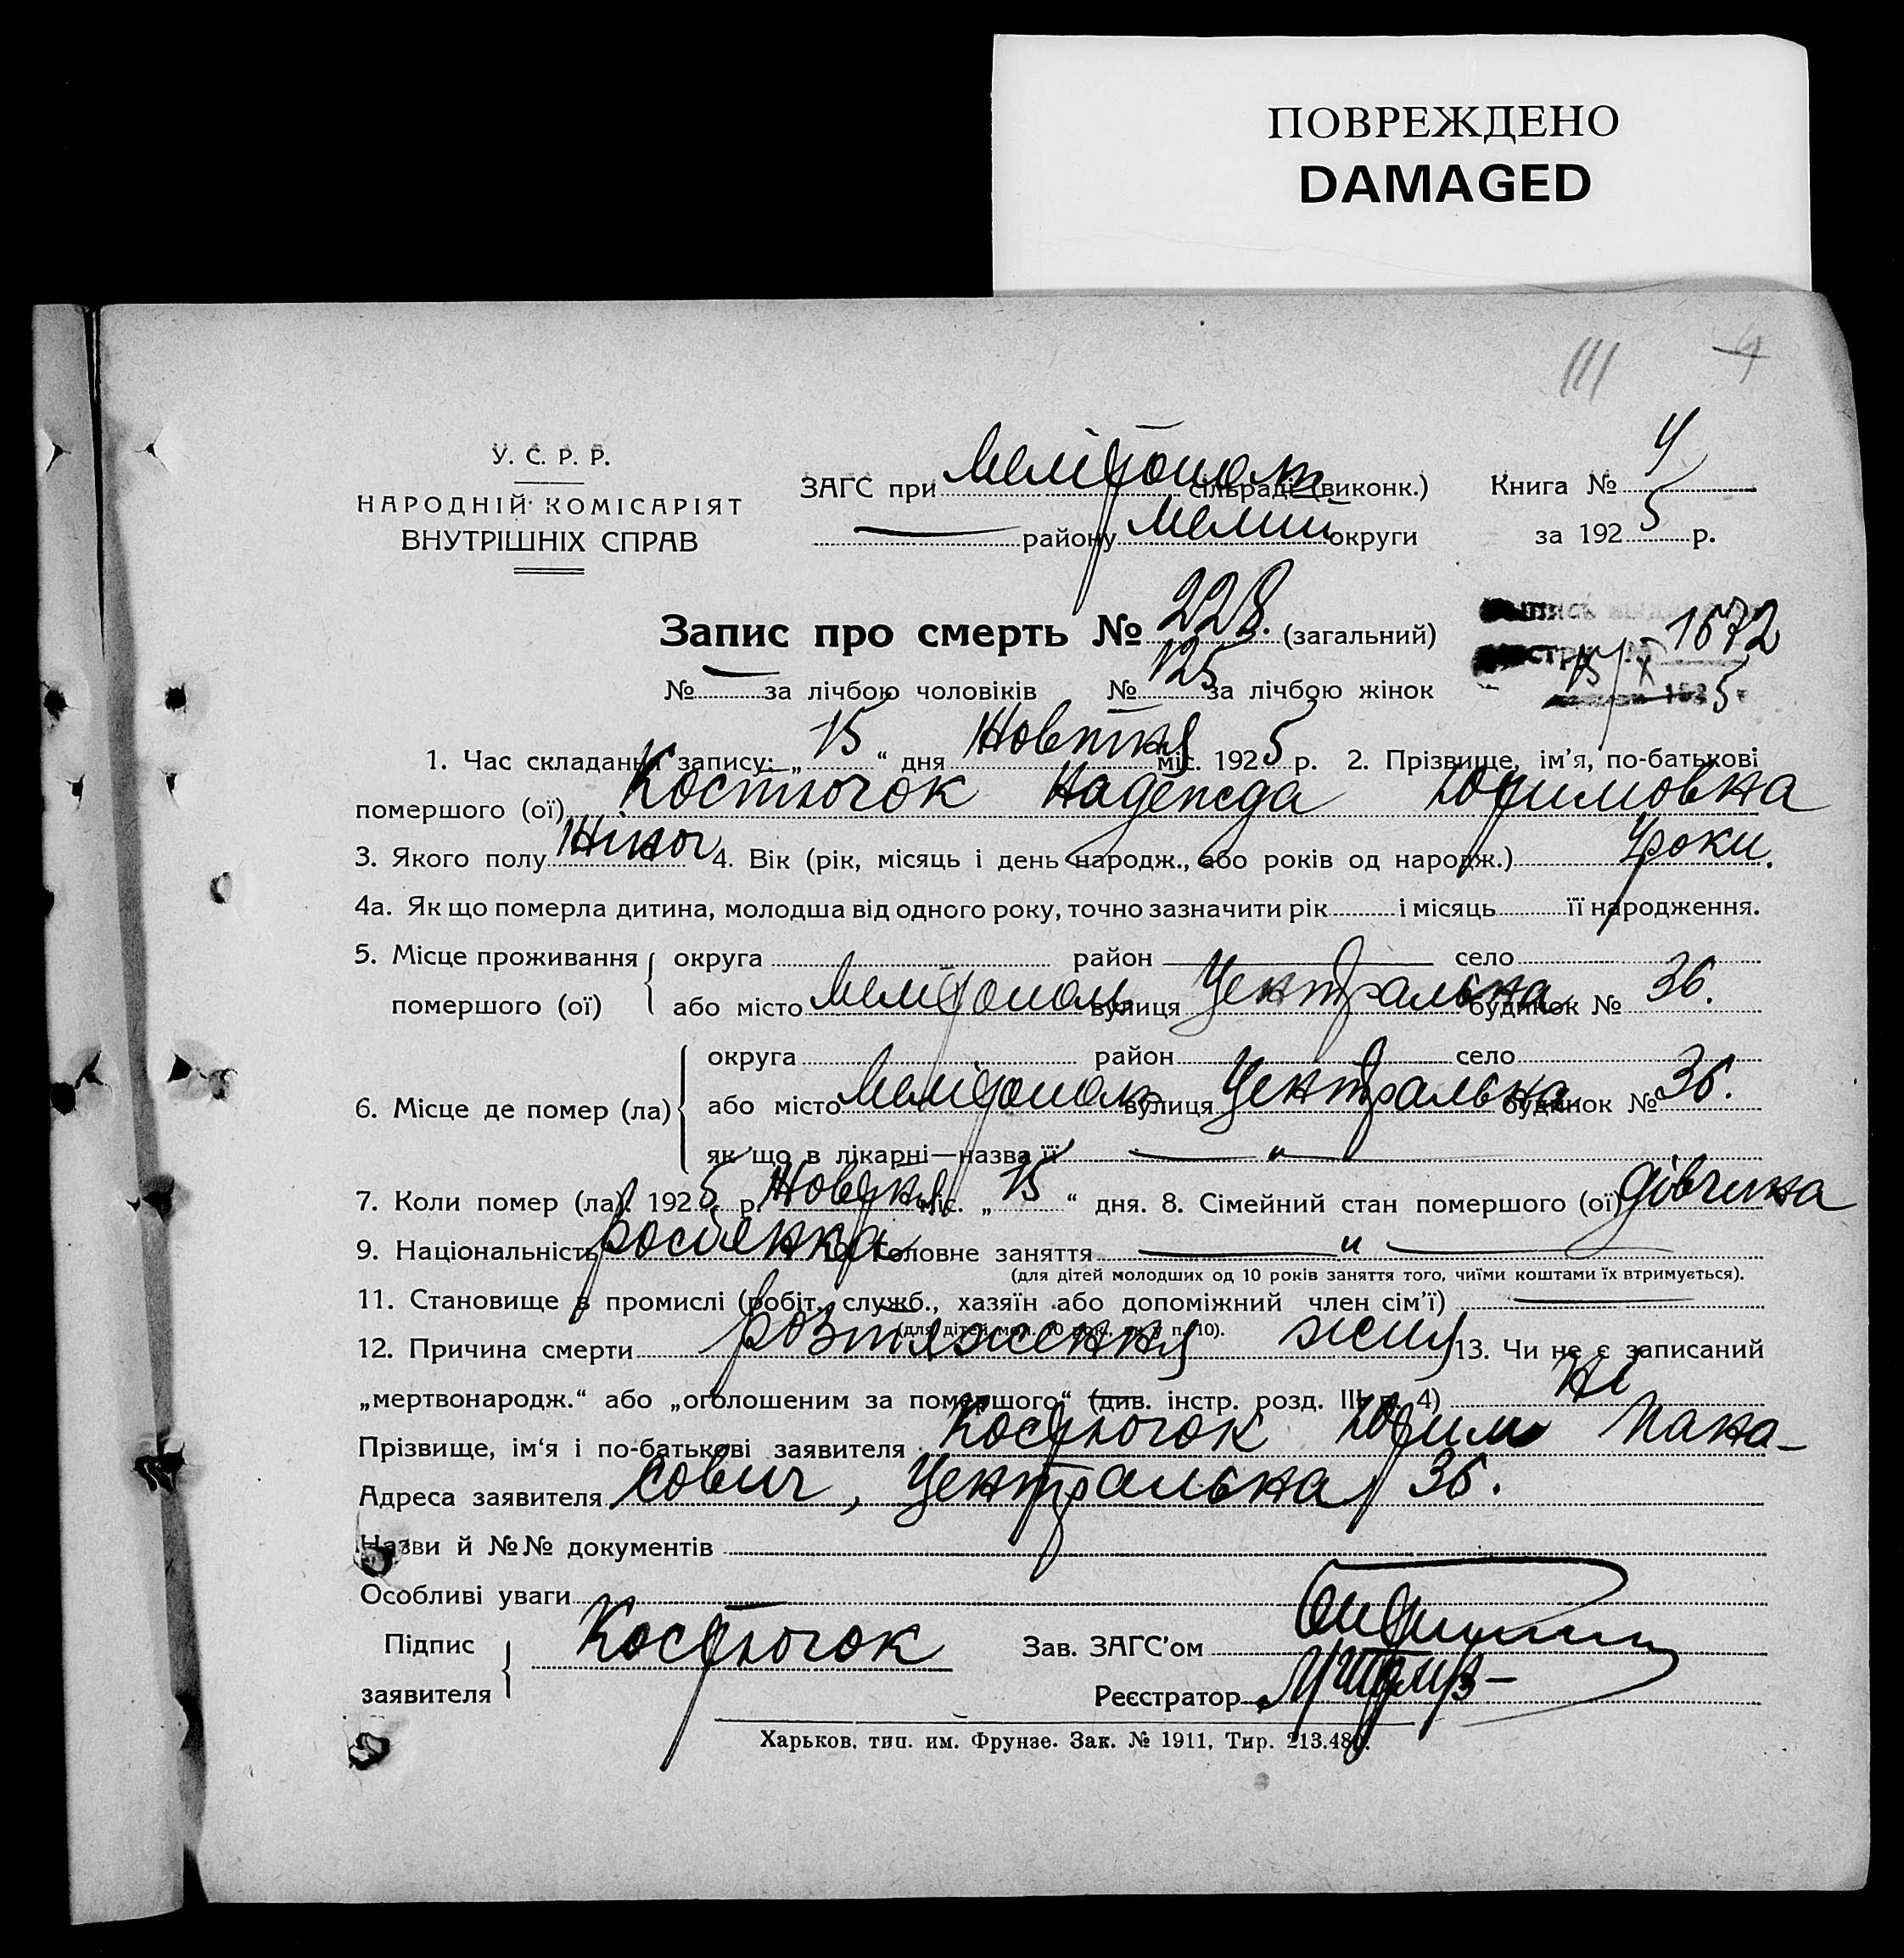 ПОВРЕЖДЕНО
DAMAGED
111 4
У. С. Р. Р.
НАРОДНІЙ КОМІСАРІЯТ
ВНУТРІШНІХ СПРАВ
ЗАГС при Мелітополь сільраді (виконк.)
— району Мелит округи
Книга № 4
за 1925 р.
Запис про смерть № 228. (загальний)
№ — за лічбою чоловіків № 125 за лічбою жінок
1672
15/X 1925 г.
1. Час складання запису: „15“ дня Жовтня міс. 1925 р. 2. Прізвище, ім'я, по-батькові
помершого (ої) Костючок Надежда Юхимовна
3. Якого полу Жіноч 4. Вік (рік, місяць і день народж., або років од народж.) 4 роки.
4а. Як що померла дитина, молодша від одного року, точно зазначити рік і місяць її народження.
5. Місце проживання помершого (ої) округа район — село
або місто Мелітополь вулиця Центральна будинок № 36.
6. Місце де помер (ла) округа район село
або місто Мелітополь вулиця Центральна будинок № 36.
як що в лікарні—назва її — „ —
7. Коли помер (ла). 1925 р. Жовтня міс. „15“ дня. 8. Сімейний стан помершого (ої) дівчина
9. Національність росіянка 10. Головне заняття — „ —
(для дітей молодших од 10 років заняття того, чиїми коштами їх втримується).
11. Становище в промислі (робіт., служб., хазяїн або допоміжний член сім'ї) —
(для дітей мол. 10 рок., як у п. 10).
12. Причина смерти 13. Чи не є записаний
„мертвонародж.“ або „оголошеним за помершого“ (див. інстр. розд. III п. 4) Ні
Прізвище, ім'я і по-батькові заявителя Костючок Юхим Пана-
Адреса заявителя сович, Центральна 36.
Назви й №№ документів
Особливі уваги
Підпис заявителя Костючок
Зав. ЗАГС'ом
Реєстратор
Харьков, тип. им. Фрунзе. Зак. № 1911, Тир. 213.480.